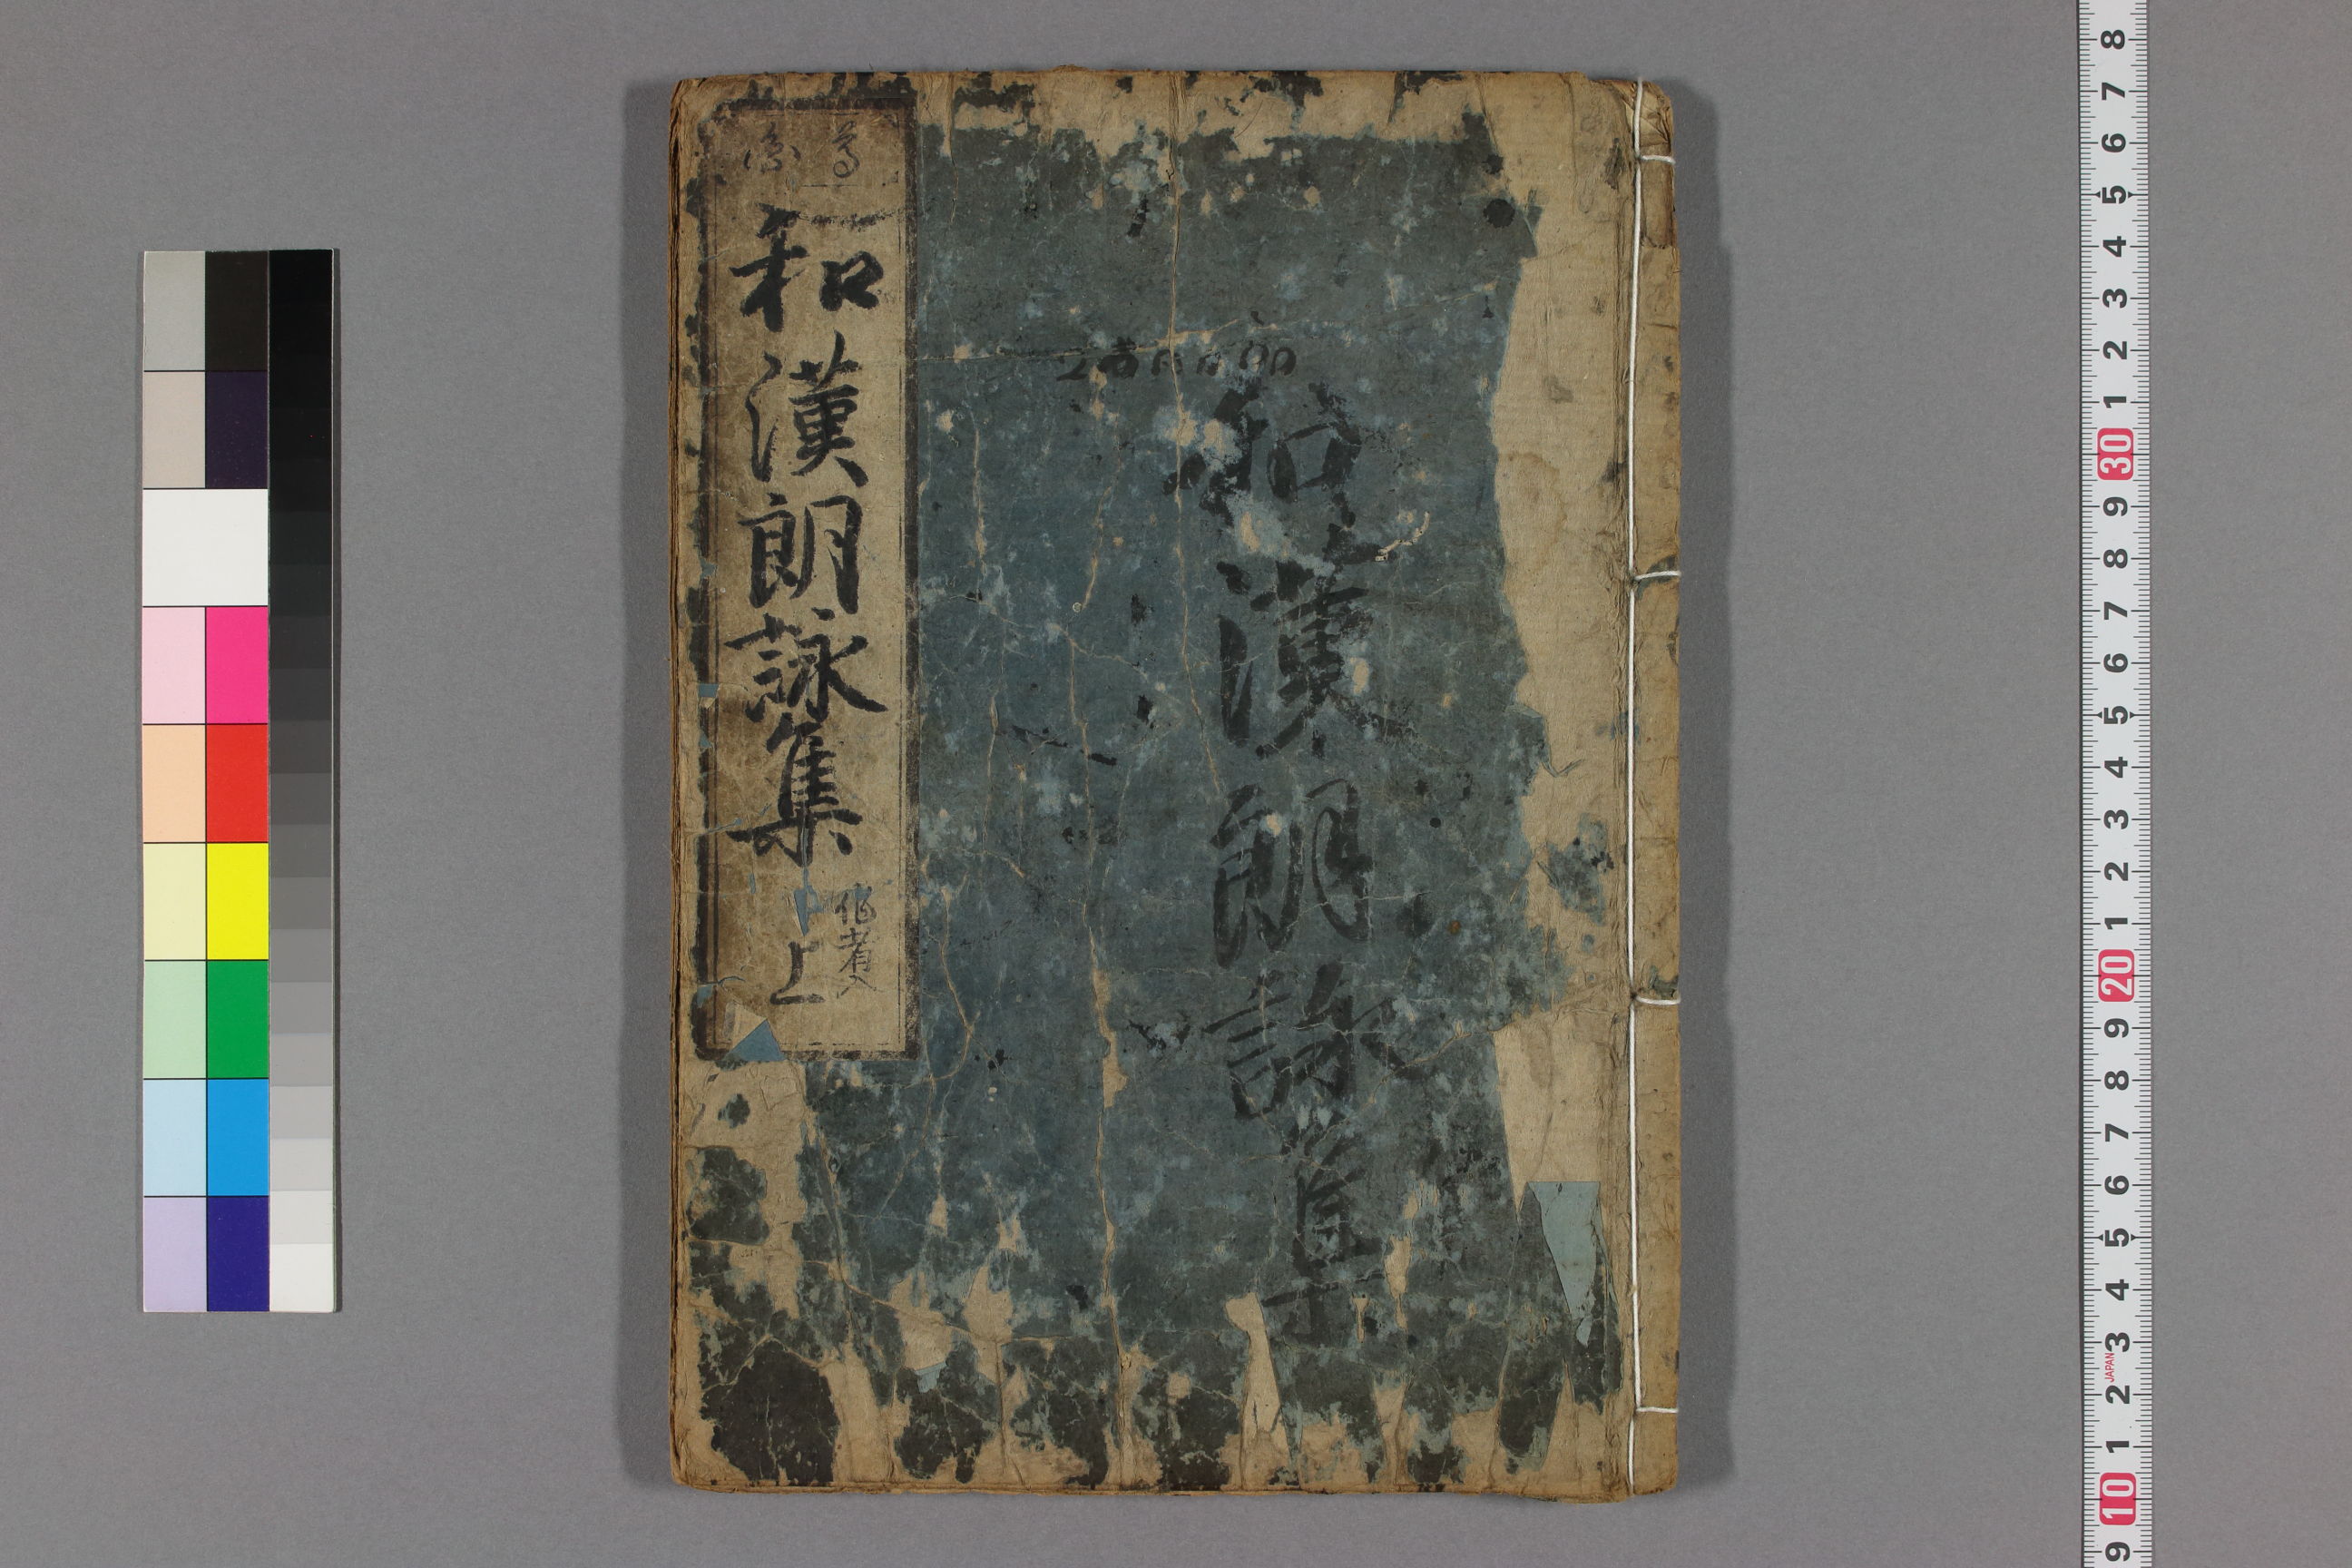 和漢朗詠集
和漢朗詠集
作者入
上
8
7
6
5
4
3
2
1
30
9
8
7
6
5
4
3
2
1
20
9
8
7
6
5
4
3
JAPAN
2
1
10
9